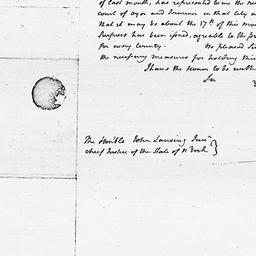 of last month, has represented to me the
court of oyer and Terminer in that City
that it may be about the 17th of this mon
Purpose has been issued, agreeable to the
for every County. No
the necessary measure for holding this
I have the Honor to be with
Sir
The Hon'ble John Lansing Jun'r
Chief Justice of the State of N York